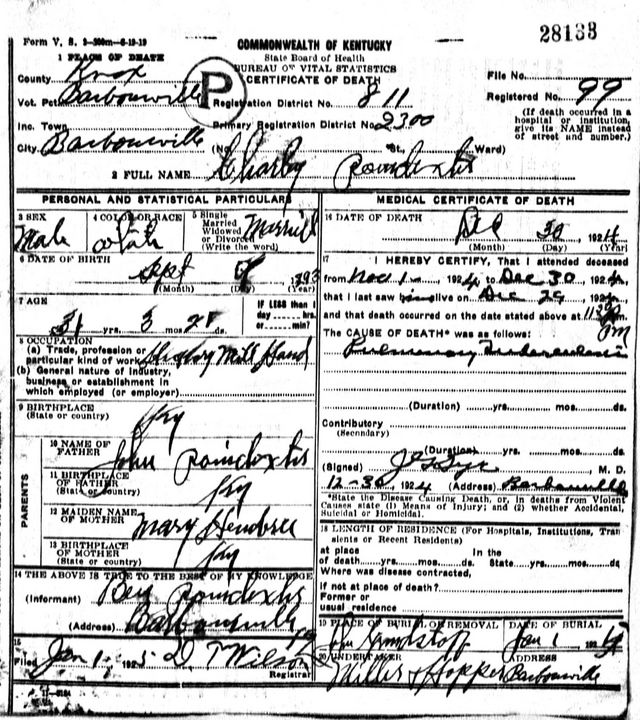 28133
Form V. S. 3-500m-6-19-19
COMMONWEALTH OF KENTUCKY
State Board of Health
BUREAU OF VITAL STATISTICS
CERTIFICATE OF DEATH
1 PLACE OF DEATH
County Knox
Vot. Pct. Barbourville
Inc. Town
City Barbourville
P
Registration District No. 811
Primary Registration District No. 2300
(No. St., Ward)
File No.
Registered No. 99
(If death occurred in a
hospital or institution,
give its NAME instead
of street and number.)
2 FULL NAME Charley Poindexter
PERSONAL AND STATISTICAL PARTICULARS
3 SEX
Male
4 COLOR OR RACE
white
5 Single
Married
Widowed
or Divorced
(Write the word)
Married
6 DATE OF BIRTH
Sept 1893
(Month) (Day) (Year)
7 AGE
31 yrs. 3 mos. ds.
IF LESS than 1
day hrs.
or min.?
8 OCCUPATION
(a) Trade, profession or
particular kind of work Hickory Mill Hand
(b) General nature of industry,
business or establishment in
which employed (or employer)
9 BIRTHPLACE
(State or country)
Ky
PARENTS
10 NAME OF
FATHER
John Poindexter
11 BIRTHPLACE
OF FATHER
(State or country)
Ky
12 MAIDEN NAME
OF MOTHER
Mary
13 BIRTHPLACE
OF MOTHER
(State or country)
Ky
14 THE ABOVE IS TRUE TO THE BEST OF MY KNOWLEDGE
(Informant) Ben Poindexter
(Address) Barbourville
15
Filed Jan 1, 1925 D T Wilson
Registrar
MEDICAL CERTIFICATE OF DEATH
16 DATE OF DEATH
Dec 30 1924
(Month) (Day) (Year)
17 I HEREBY CERTIFY, That I attended deceased
from Nov 1 - 1924, to Dec 30 1924,
that I last saw him alive on Dec 29 1924,
and that death occurred on the date stated above at 11 pm
The CAUSE OF DEATH* was as follows:
Pulmonary Tuberculosis
(Duration) yrs. mos. ds.
Contributory
(Secondary)
(Duration) yrs. mos. ds.
(Signed) M. D.
12-30, 1924 (Address) Barbourville
*State the Disease Causing Death, or, in deaths from Violent
Causes state (1) Means of Injury; and (2) whether Accidental,
Suicidal or Homicidal.
18 LENGTH OF RESIDENCE (For Hospitals, Institutions, Tran
sients or Recent Residents)
at place In the
of death yrs. mos. ds. State yrs. mos. ds
Where was disease contracted,
if not at place of death?
Former or
usual residence
19 PLACE OF BURIAL OR REMOVAL DATE OF BURIAL
Jan 1 192
20 UNDERTAKER ADDRESS
Miller & Hopper Barbourville